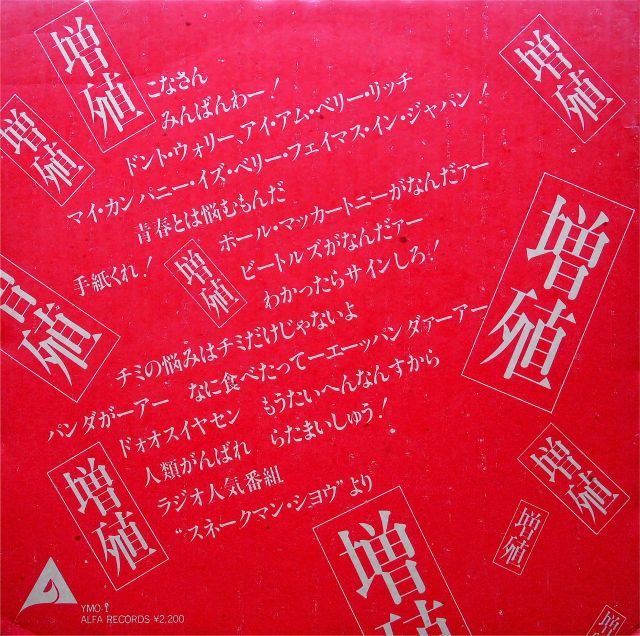 増殖
増殖
増殖
こなさん
みんばんわー！
ドント・ウォリー、アイ・アム・ベリー・リッチ
マイ・カンパニー・イズ・ベリー・フェイマス・イン・ジャパン！
青春とは悩むもんだ
手紙くれ！
増殖
ポール・マッカートニーがなんだァー
ビートルズがなんだァー
わかったらサインしろ！
増殖
増殖
チミの悩みはチミだけじゃないよ
パンダがーアー　なに食べたってーエーッパンダァーアー
ドォオスイヤセン　もうたいへんなんすから
人類がんばれ　らたまいしゅう！
ラジオ人気番組
“スネークマン・ショウ”より
増殖
増殖
増殖
増殖
増殖
YMO-1
ALFA RECORDS ¥2,200